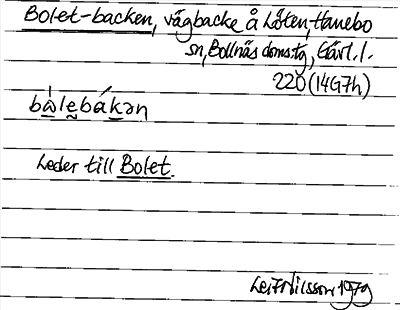 Bolet-backen, vägbacke å Löten, Hanebo
sn, Bollnäs doms:tg, Gävl. l.
220 (14G7h)
bàlebákən
Leder till Bolet.
Leif Nilsson 1979